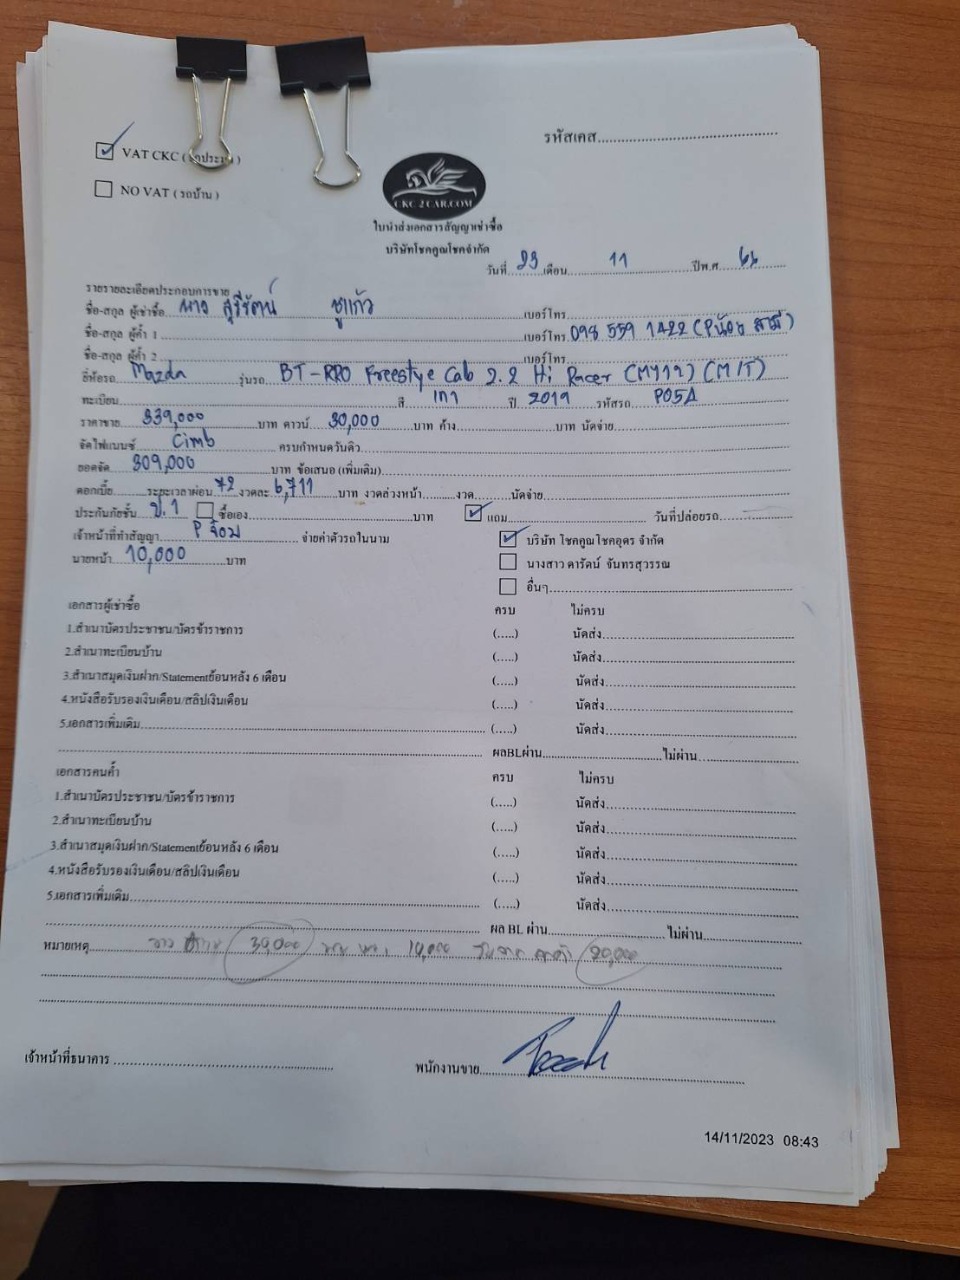 รหัสเคส
✓ VAT CKC (
NO VAT (รถบ้าน)
CKC 2 CAR.COM
ใบนำส่งเอกสารสัญญาเช่าซื้อ
บริษัทโชคคูณโชคจำกัด
วันที่ 23 เดือน 11 ปีพ.ศ 66
รายรายละเอียดประกอบการขาย
ชื่อ-สกุล ผู้เช่าซื้อ นาง สุรีรัตน์ ชูแก้ว เบอร์โทร
ชื่อ-สกุล ผู้ค้ำ 1 เบอร์โทร 098 559 1422 (Pน้อย สามี)
ชื่อ-สกุล ผู้ค้ำ 2 เบอร์โทร
ยี่ห้อรถ Mazda รุ่นรถ BT-RRO Freestye Cab 2.2 Hi Racer (MY12) (M/T)
ทะเบียน สี เทา ปี 2019 รหัสรถ P05A
ราคาขาย 339,000 บาท ดาวน์ 30,000 บาท ค้าง บาท นัดจ่าย
จัดไฟแนนซ์ Cimb ครบกำหนดวันคิว
ยอดจัด 309,000 บาท ข้อเสนอ (เพิ่มเติม)
ดอกเบี้ย ระยะเวลาผ่อน 72 งวดละ 6,711 บาท งวดล่วงหน้า งวด นัดจ่าย
ประกันภัยชั้น ป.1 ซื้อเอง บาท ✓ แถม วันที่ปล่อยรถ
เจ้าหน้าที่ทำสัญญา P จ่ายค่าตัวรถในนาม ✓ บริษัท โชคคูณโชคอุดร จำกัด
นายหน้า 10,000 บาท นางสาว ดารัตน์ จันทรสุวรรณ
อื่นๆ
เอกสารผู้เช่าซื้อ ครบ ไม่ครบ
1.สำเนาบัตรประชาชน/บัตรข้าราชการ (.....) นัดส่ง
2.สำเนาทะเบียนบ้าน (.....) นัดส่ง
3.สำเนาสมุดเงินฝาก/Statementย้อนหลัง 6 เดือน (.....) นัดส่ง
4.หนังสือรับรองเงินเดือน/สลิปเงินเดือน (.....) นัดส่ง
5.เอกสารเพิ่มเติม (.....) นัดส่ง
ผลBLผ่าน ไม่ผ่าน
เอกสารคนค้ำ ครบ ไม่ครบ
1.สำเนาบัตรประชาชน/บัตรข้าราชการ (.....) นัดส่ง
2.สำเนาทะเบียนบ้าน (.....) นัดส่ง
3.สำเนาสมุดเงินฝาก/Statementย้อนหลัง 6 เดือน (.....) นัดส่ง
4.หนังสือรับรองเงินเดือน/สลิปเงินเดือน (.....) นัดส่ง
5.เอกสารเพิ่มเติม (.....) นัดส่ง
ผล BL ผ่าน ไม่ผ่าน
หมายเหตุ 30,000 10,000 20,000
เจ้าหน้าที่ธนาคาร
พนักงานขาย
14/11/2023 08:43